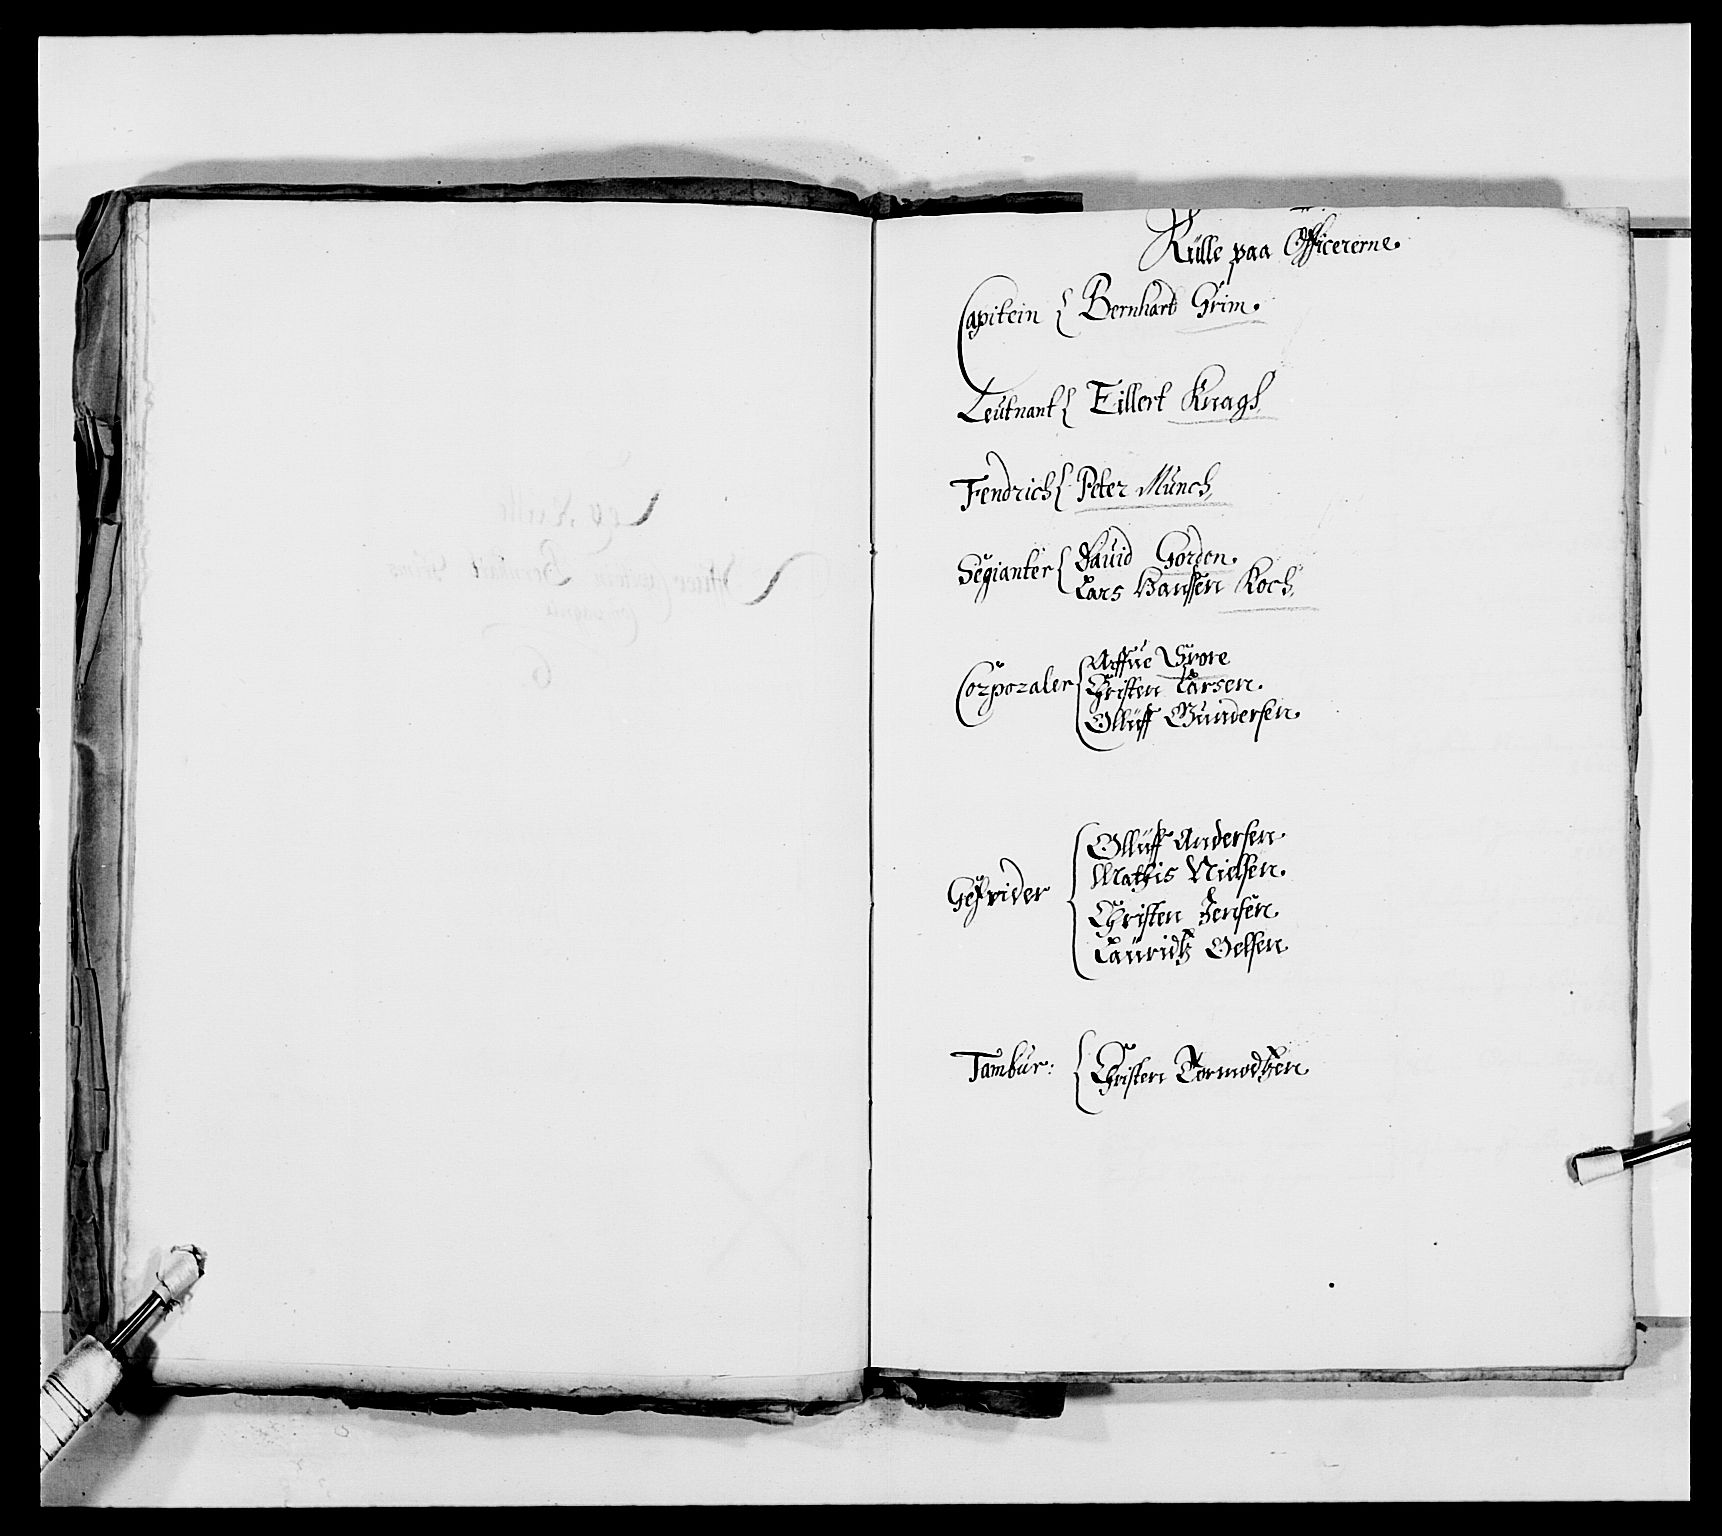 Rülle paa Officererne.
Capitein { Bernhart Grim.
Leutnant { Eillert Kragh
Fendrich { Peter Münch,
Segianter { David Gorden.
Lars Hanssen Koch,
Corporaler { Affue Grore
Christen Larsen.
Ollüff Gundersen.
Gefrider { Ollüff Andersen
Mathis Nielsen.
Christen Jensen.
Lauridtz Oelsen
Tambur: { Christen Tormodtzen